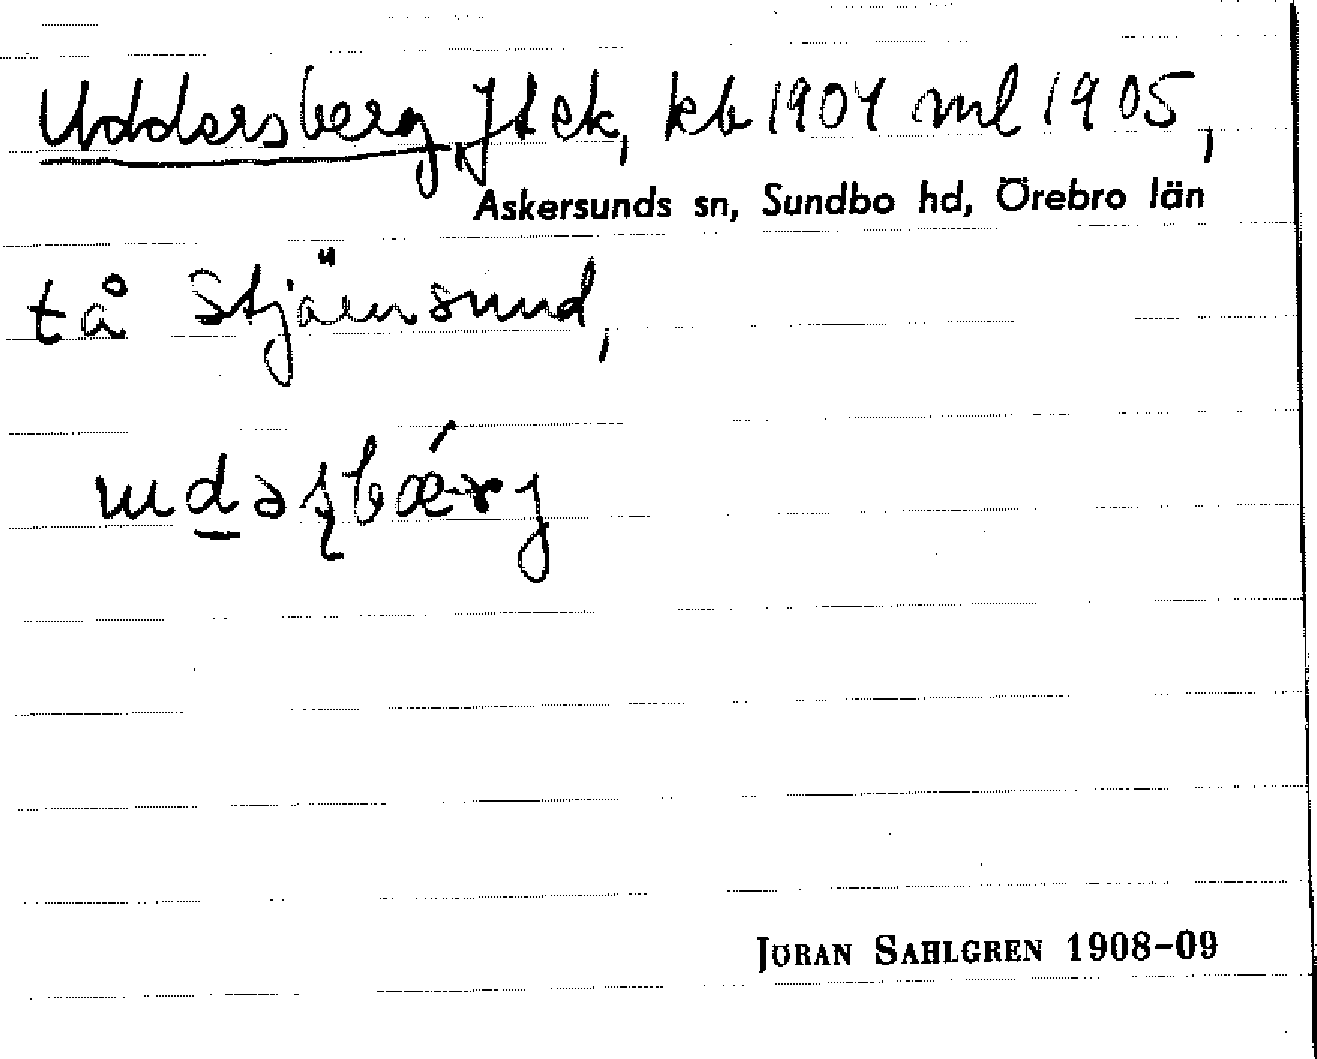 Uddersberg, Jt ek, kb 1904 ml 1905,
Askersunds sn, Sundbo hd, Örebro län
tå Stjärnsund,
JÖRAN SAHLGREN 1908-09